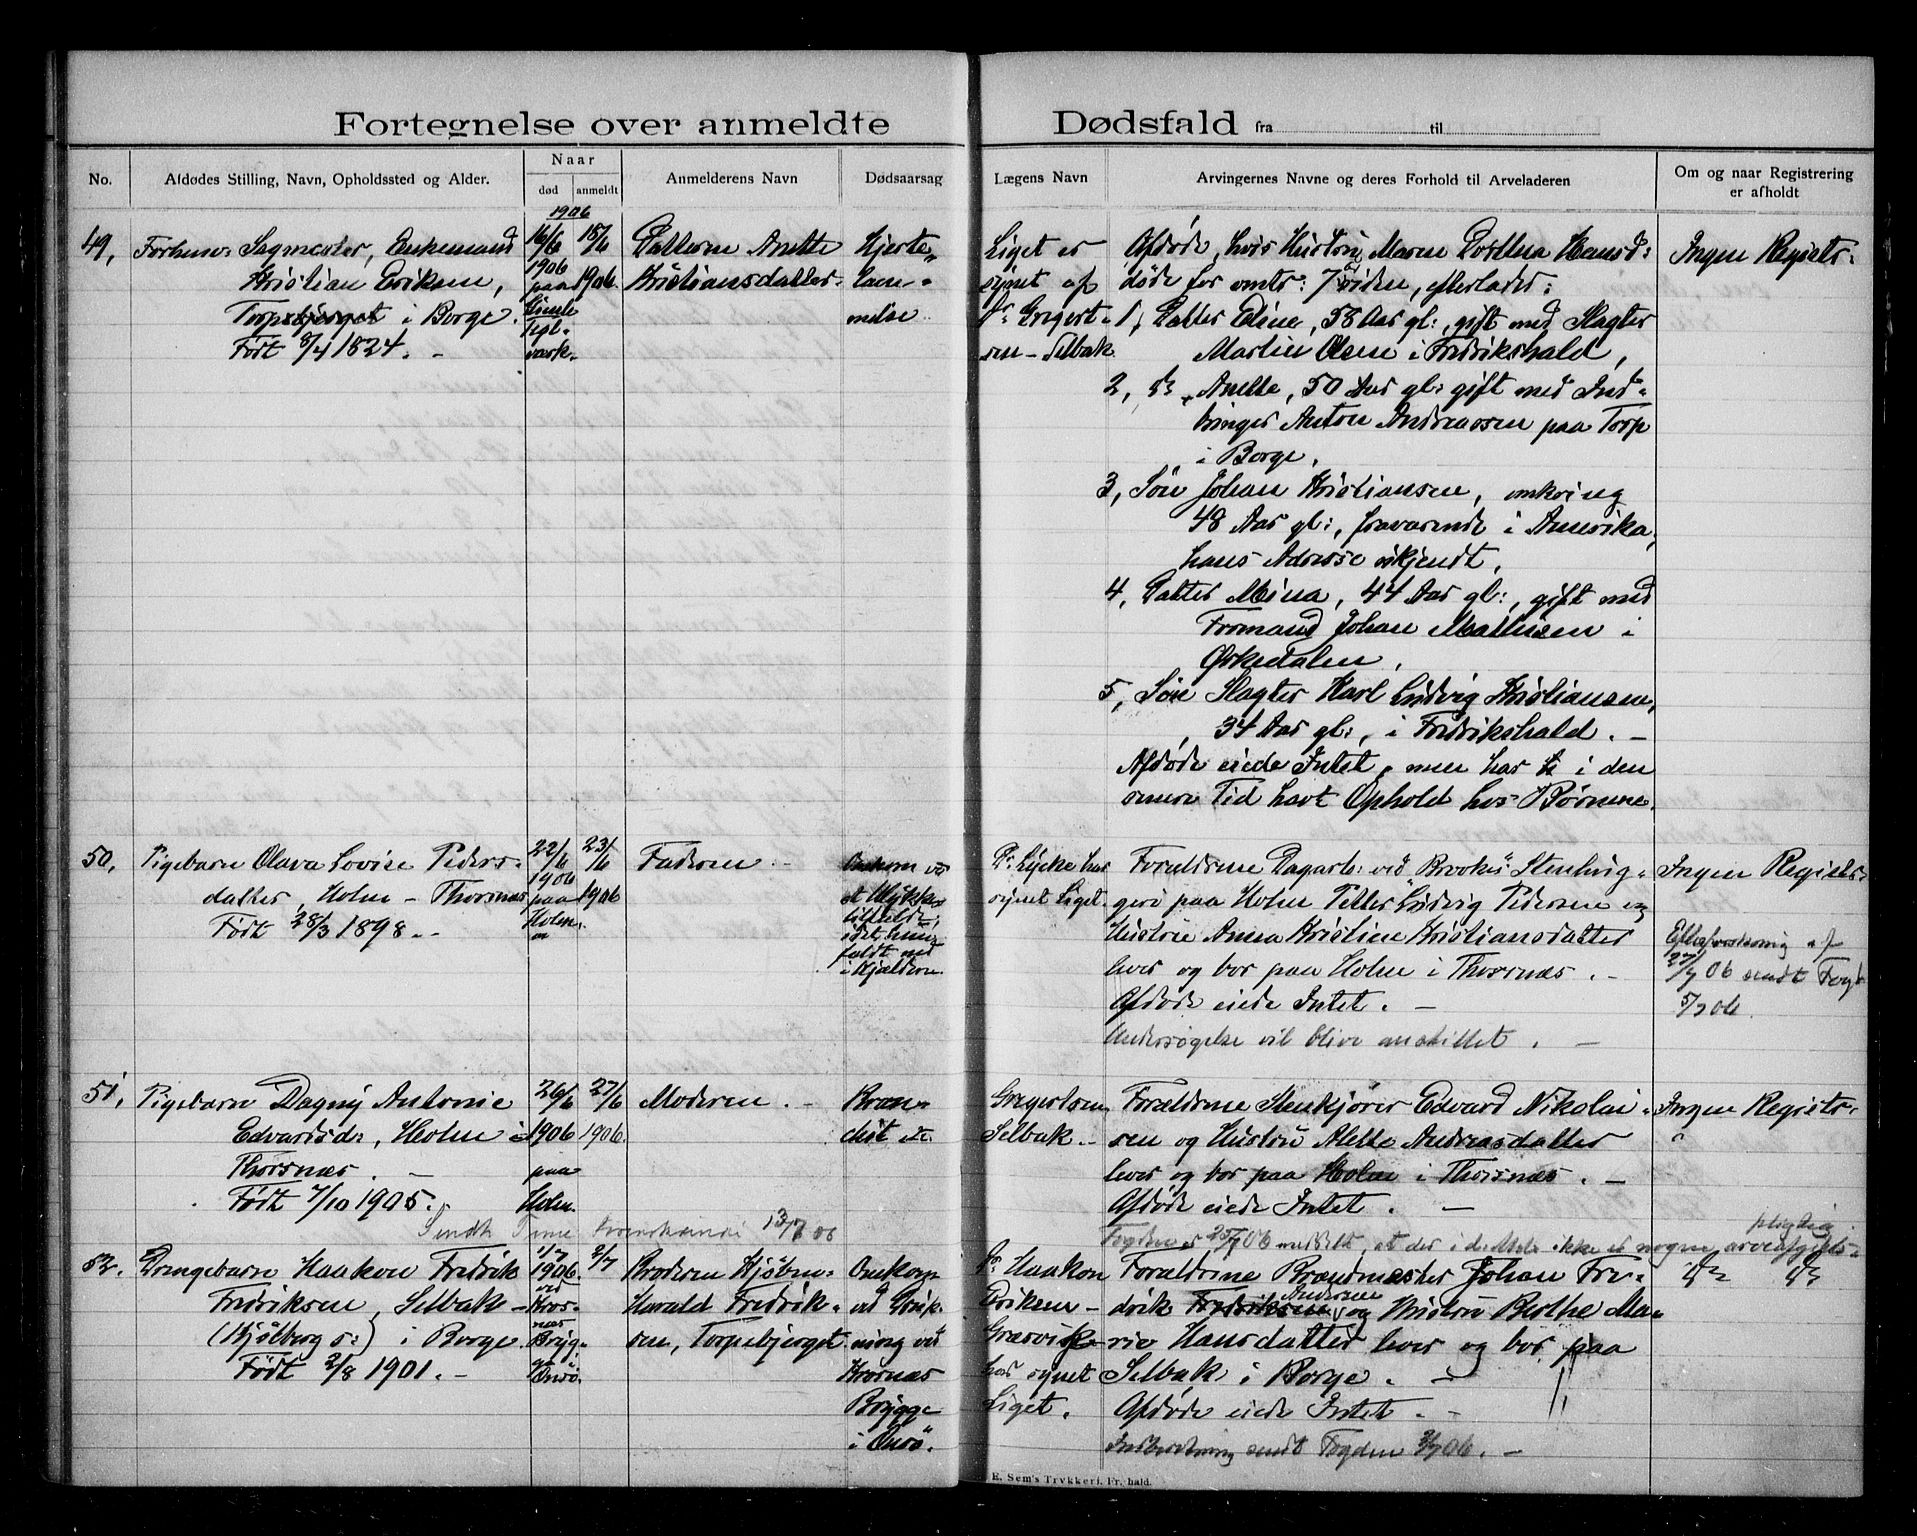 Fortegnelse over anmeldte Dødsfald fra til
No.
Afdødes Stilling, Navn, Opholdssted og Alder.
Naar
død
anmeldt
Anmelderens Navn
Dødsaarsag
Lægens Navn
Arvingernes Navne og deres Forhold til Arveladeren
Om og naar Registrering
er afholdt
1906
49,
Forhenv: Sagmester, Enkemand
Kristian Eriksen,
Torpebjerget i Borge.
Født 8/4 1824. -
16/6
1906
paa
Tegl-
værk.
18/6
1906.
Datteren Anette
Kristiansdatter.
Hjerte-
lam-
melse
Liget er
synet af
Dr Gregert-
sen - Selbak
Afdøde, hvis Hustru Maren Dorthea Hansd:
døde for omtr: 7 siden, efterlader:
1, Datter Edine, 58 Aar gl:, gift med Slagter
Martin Olsen i Fredrikshald,
2, do, Anette, 50 Aar gl: gift med Ind-
bringer Anton Andreassen paa Torp
i Borge,
3, Søn Johan Kristiansen, omkring
48 Aar gl:, fraværende i Amerika,
hans Adresse ukjendt,
4, Datter Mina, 44 Aar gl:, gift med
Formand Johan Mathisen i
Ørkedalen,
5, Søn Slagter Karl Ludvig Kristiansen,
34 Aar gl:, i Fredrikshald. -
Afdøde eiede Intet, men har i den
senere Tid havt Ophold hos Børnene.
Ingen Registr:
50,
Pigebarn Olava Lovise Peders-
datter, Holm - Thorsnæs
Født 28/3 1898. -
22/6
1906
paa
Holm.
23/6
1906
Faderen. -
Omkom ved
et Ulykkes-
tilfælde,
idet hun
faldt ned
i Kjælderen
Dr Lycke har
synet Liget.
Forældrene Dagarb: ved "Brookes" Stenhug-
geri paa Holm Petter Ludvig Pedersen og
Hustru Anna Kristine Kristiansdatter
hver og bor paa Holm i Thorsnæs. -
Afdøde eiede Intet. -
Undersøgelse vil blive anstillet. -
Ingen Registr:
Efterforskning af
27/7 06 sendt Fogd
5/7 06.
51,
Pigebarn Dagny Antonie
Edvardsd:, Holm i
Thorsnæs. -
Født 7/10 1905.
26/6
1906
paa
Holm.
27/6
1906.
Moderen. -
Bron-
chit etc.
Gregertsen
Selbak. -
Forældrene Stenkjører Edvard Nikolai-
sen og Hustru Alette Andreasdatter
hver og bor paa Holm i Thorsnæs. -
Afdøde eiede Intet. -
Ingen Registr:
"
Sendt 13/7 06
Fogden er 25/7 06 meddelt, at der i d. Mdr. ikke er nogen arveafgifts-
pligtig
52.
Drengebarn Haakon Fredrik
Fredriksen, Selbak -
(Kjølberg s:) i Borge
Født 2/8 1901. -
1/7
1906.
ved
Kros-
næs
Brygge
i
Onsø.
2/7
Broderen
Harald Fredrik-
sen, Torpebjerget
Omkom
ved Druk-
ning ved
Krosnæs
Brygge
i Onsø.
Dr Haakon
Eriksen -
Græsvik
har synet
Liget.
Forældrene Brandmester Johan Fre-
drik Fredriksen Andersen og Hustru Berthe Ma-
rie Hansdatter hver og bor paa
Selbak i Borge. -
Afdøde eiede Intet. -
Indberetning sendt Fogden 3/7 06. -
do do
E. Sem's Trykkeri. Fr. hald.